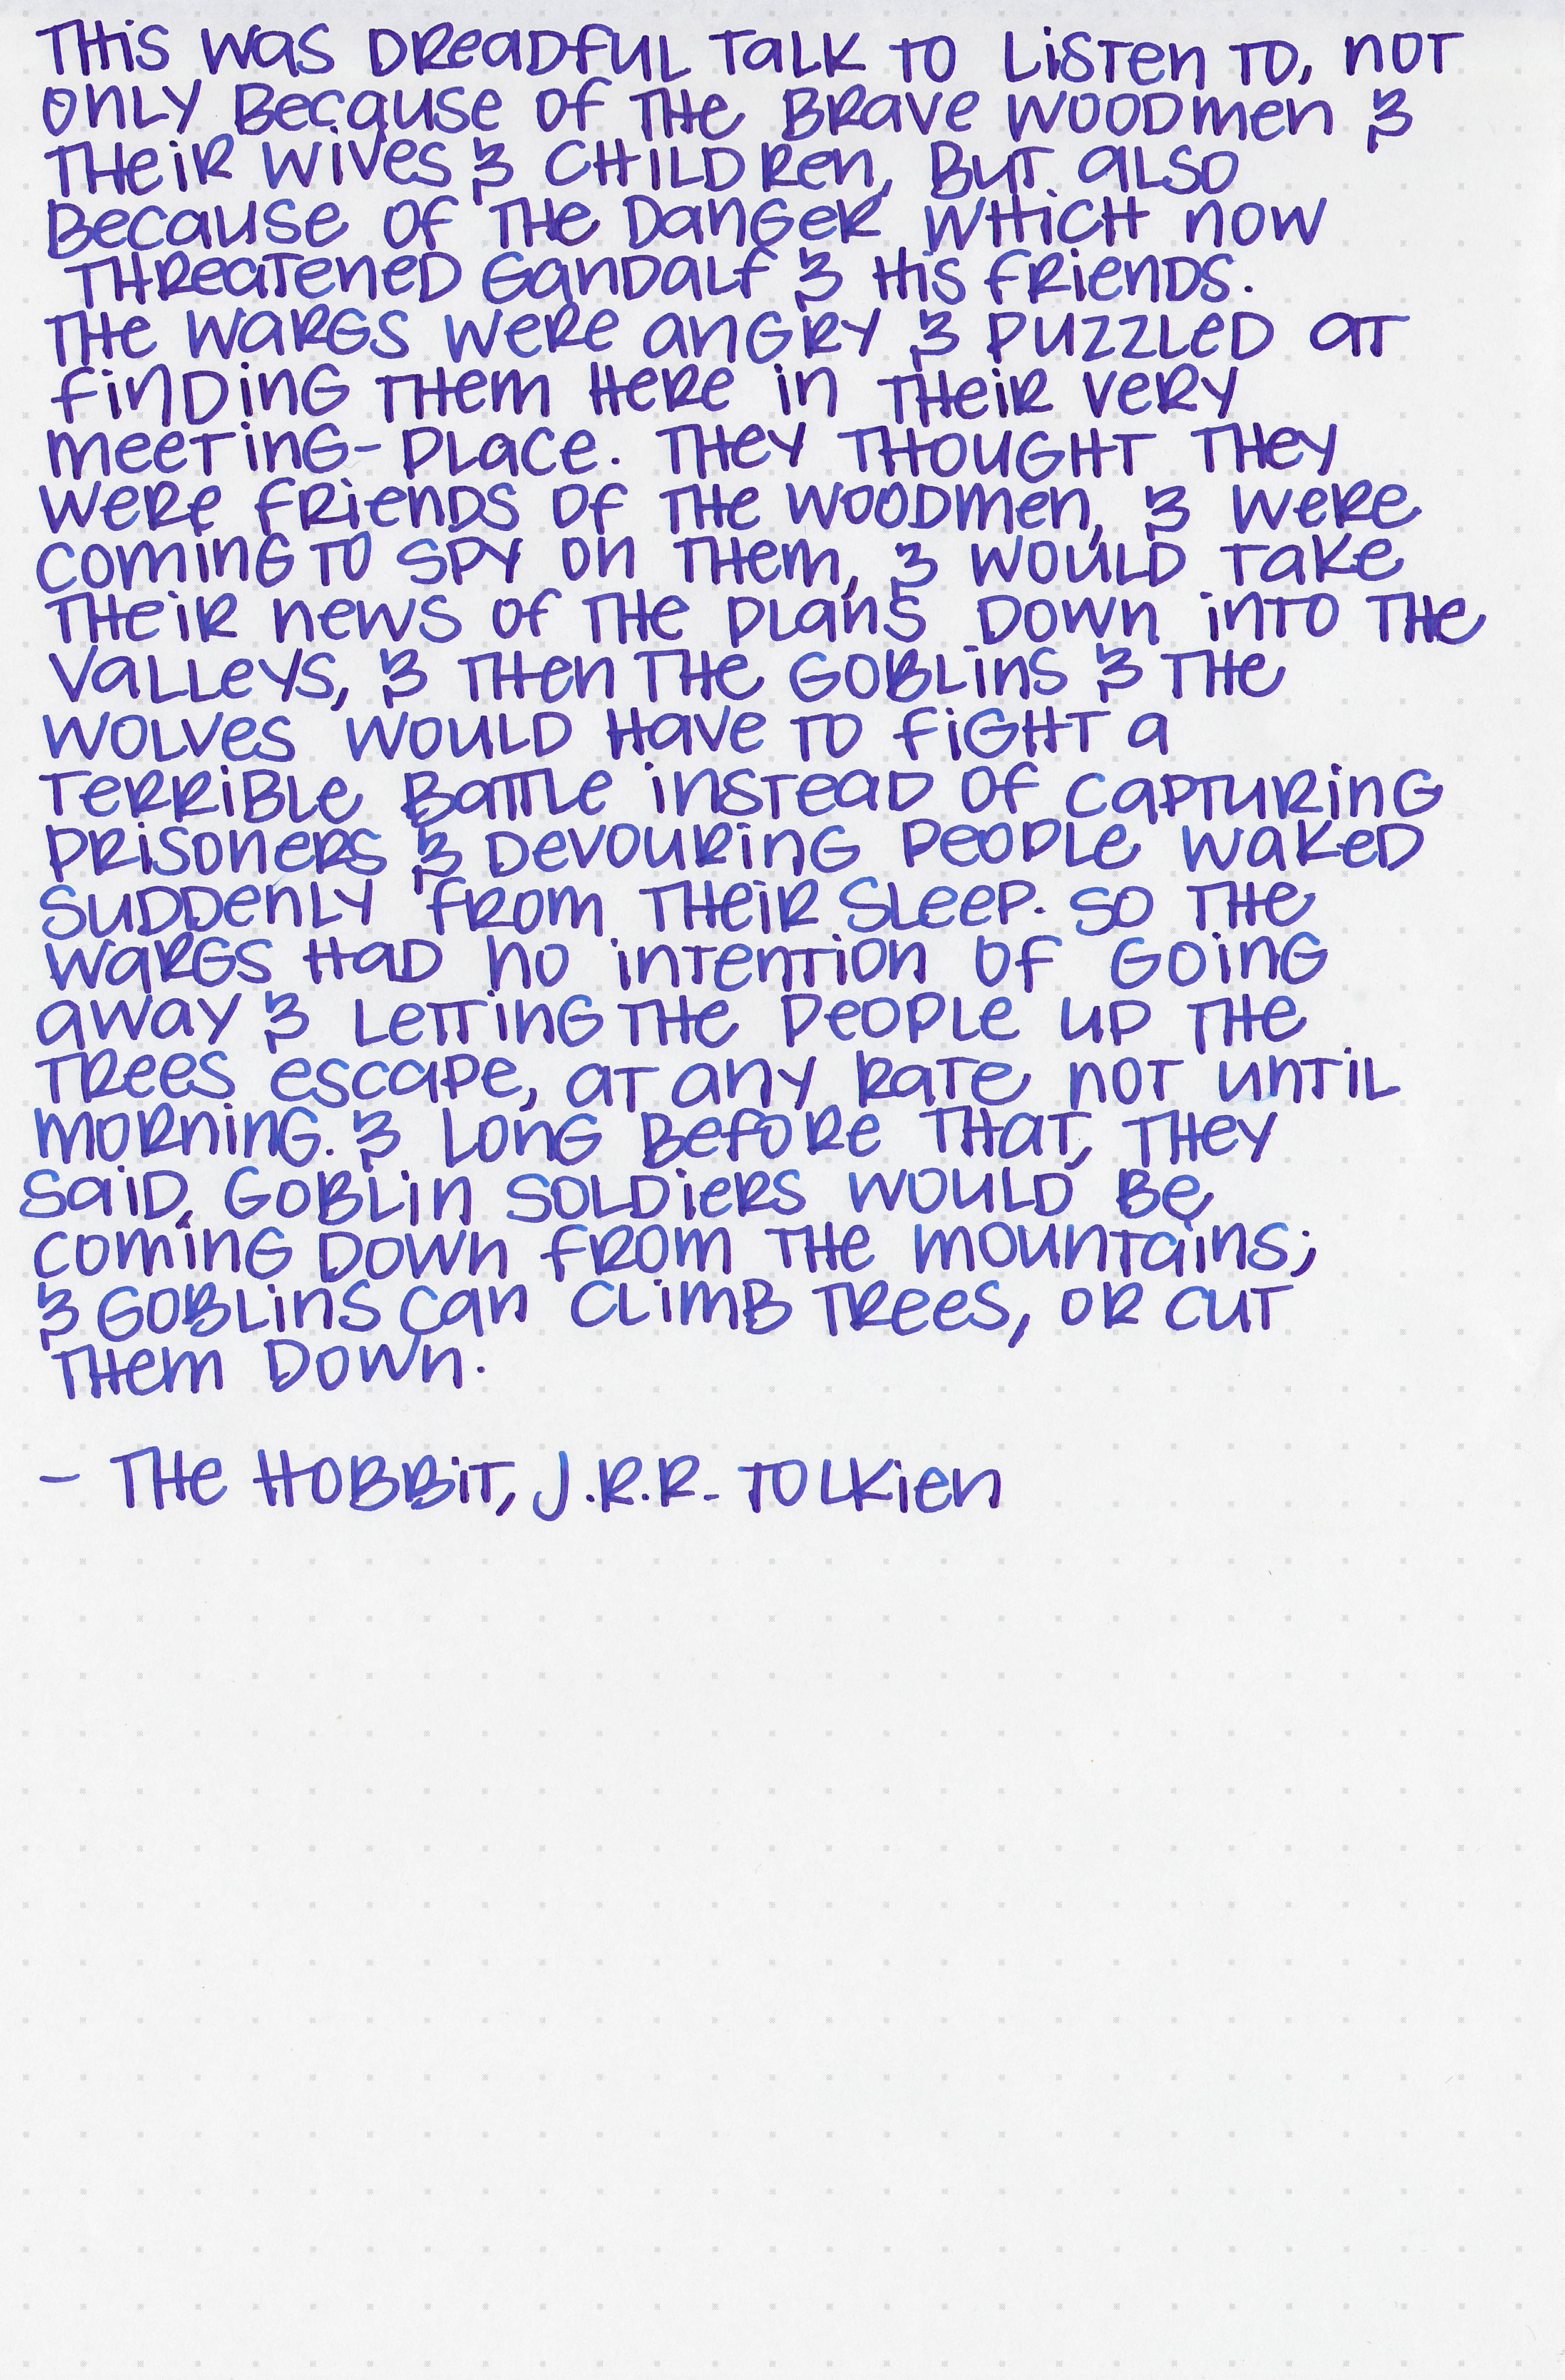 This was dreadful talk to listen to, not
only because of the brave woodmen &
their wives & children, but also
because of the danger which now
threatened Gandalf & his friends.
The Wargs were angry & puzzled at
finding them here in their very
meeting-place. They thought they
were friends of the woodmen, & were
coming to spy on them, & would take
their news of the plans down into the
valleys, & then the goblins & the
wolves would have to fight a
terrible battle instead of capturing
prisoners & devouring people waked
suddenly from their sleep. So the
Wargs had no intention of going
away & letting the people up the
trees escape, at any rate not until
morning. & long before that, they
said, goblin soldiers would be
coming down from the mountains;
& goblins can climb trees, or cut
them down.
- The Hobbit, J.R.R. Tolkien